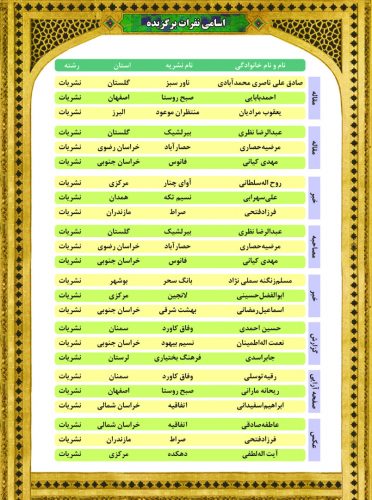 اسامی نفرات برگزیده
نام و نام خانوادگی نام نشریه استان رشته
مقاله
صادق علی ناصری محمدآبادی ناور سبز گلستان نشریات
احمدبابایی صبح روستا اصفهان نشریات
یعقوب مرادیان منتظران موعود البرز نشریات
مقاله
عبدالرضا نظری بیرلشیک گلستان نشریات
مرضیه‌حصاری حصارآباد خراسان رضوی نشریات
مهدی کیانی فانوس خراسان جنوبی نشریات
خبر
روح اله‌سلطانی آوای چنار مرکزی نشریات
علی‌سهرابی نسیم تکه همدان نشریات
فرزادفتحی صراط مازندران نشریات
مصاحبه
عبدالرضا نظری بیرلشیک گلستان نشریات
مرضیه‌حصاری حصارآباد خراسان رضوی نشریات
مهدی کیانی فانوس خراسان جنوبی نشریات
خبر
مسلم‌زنگنه سملی نژاد بانگ سحر بوشهر نشریات
ابوالفضل‌حسینی لانجین مرکزی نشریات
اسماعیل‌رمضانی بهشت شرقی خراسان جنوبی نشریات
گزارش
حسین احمدی وفاق کاورد سمنان نشریات
نعمت اله‌اطمینان نسیم بیهود خراسان جنوبی نشریات
جابراسدی فرهنگ بختیاری لرستان نشریات
صفحه آرایی
رقیه‌توسلی وفاق کاورد سمنان نشریات
ریحانه مارانی صبح روستا اصفهان نشریات
ابراهیم‌اسفیدانی اتفاقیه خراسان شمالی نشریات
عکس
عاطفه‌صادقی اتفاقیه خراسان شمالی نشریات
فرزادفتحی صراط مازندران نشریات
آیت اله‌لطفی دهکده مرکزی نشریات